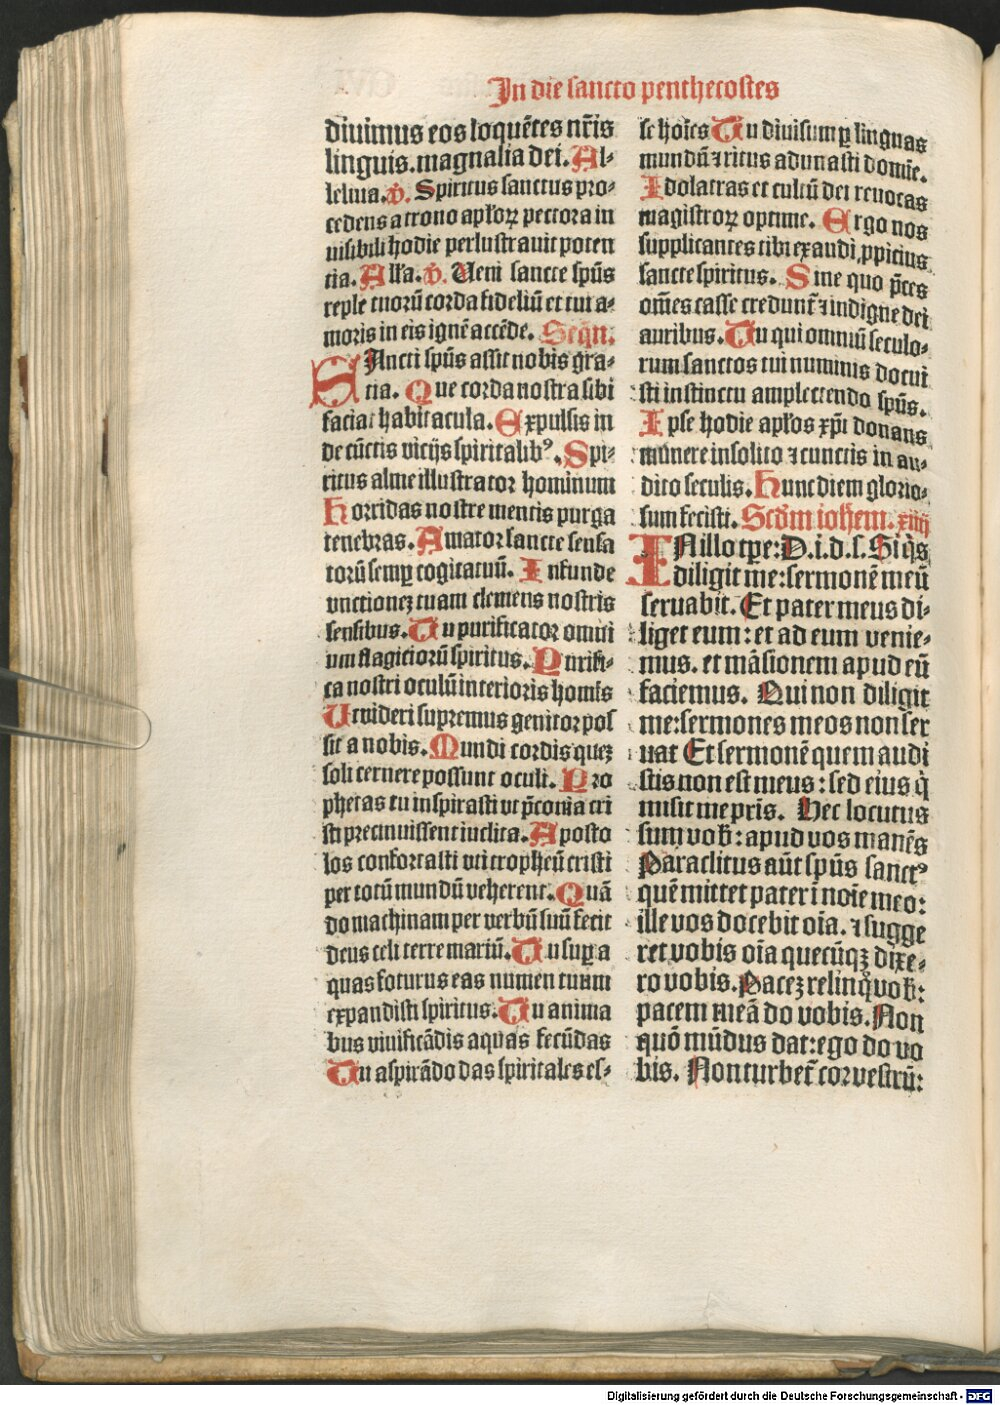 In die sancto penthecostes
diuinus eos loquētes nr̄is
linguis. magnalia dei. Al-
leluia. v̄. Spiritus sanctus pro-
cedens a trono apl'oꝝ pectora in
uisibili hodie perlustrauit poten
tia. All'a. v̄. Ueni sancte spūs
reple tuorū corda fideliū et tui a-
moris in eis ignē accēde. Seqn̄.
SAncti spūs assit nobis gra-
tia. Que corda nostra sibi
faciat habitacula. Expulsis in
de cūctis vicijs spiritalibꝰ. Spi-
ritus alme illustrator hominum
Horridas nostre mentis purga
tenebras. Amator sancte sensa
torū semꝑ cogitatuū. Infunde
vnctionez tuam clemens nostris
sensibus. Tu purificator omni
um flagiciorū spiritus. Purifi-
ca nostri oculū interioris homīs
Ut videri supremus genitor pos
sit a nobis. Mundi cordis quez
soli cernere possunt oculi. Pro
phetas tu inspirasti vt p̄conia cri
sti precinuissent inclita. Aposto
los confortasti vti tropheū cristi
per totū mundū veherent. Quā
do machinam per verbū suū fecit
deus celi terre mariū. Tu suꝑ a
quas foturus eas numen tuum
expandisti spiritus. Tu anima
bus viuificādis aquas fecūdas
Tu aspirādo das spiritales es-
se hoīes Tu diuisum ꝑ linguas
mundū ⁊ ritus adunasti domīe.
Idolatras et cultū dei reuocas
magistroꝝ optime. Ergo nos
supplicantes tibi exaudi ꝓpitius
sancte spiritus. Sine quo p̄ces
om̄es casse credunt̄ ⁊ indigne dei
auribus. Tu qui omniū seculo-
rum sanctos tui numinis docui
sti instinctu amplectendo spūs.
Ipse hodie apl'os xp̄i donans
munere insolito ⁊ cunctis in au-
dito seculis. Hunc diem glorio-
sum fecisti. Scd'm iohēm. xiiij
IN illo tꝑe: D. i. d. s. Si q̄s
diligit me: sermonē meū
seruabit. Et pater meus di-
liget eum: et ad eum venie-
mus. et māsionem apud eū
faciemus. Qui non diligit
me: sermones meos non ser
uat Et sermonē quem audi
stis non est meus: sed eius q̄
misit me pr̄is. Hec locutus
sum vob̄: apud vos manēs
Paraclitus aūt spūs sanctꝰ
quē mittet pater ī noīe meo:
ille vos docebit oīa. ⁊ sugge
ret vobis oīa quecūqꝫ dixe-
ro vobis. Pacez relinq̊ vob̄:
pacem meā do vobis. Non
quō mūdus dat: ego do vo
bis. Non turbet̄ cor vestrū:
Digitalisierung gefördert durch die Deutsche Forschungsgemeinschaft - DFG